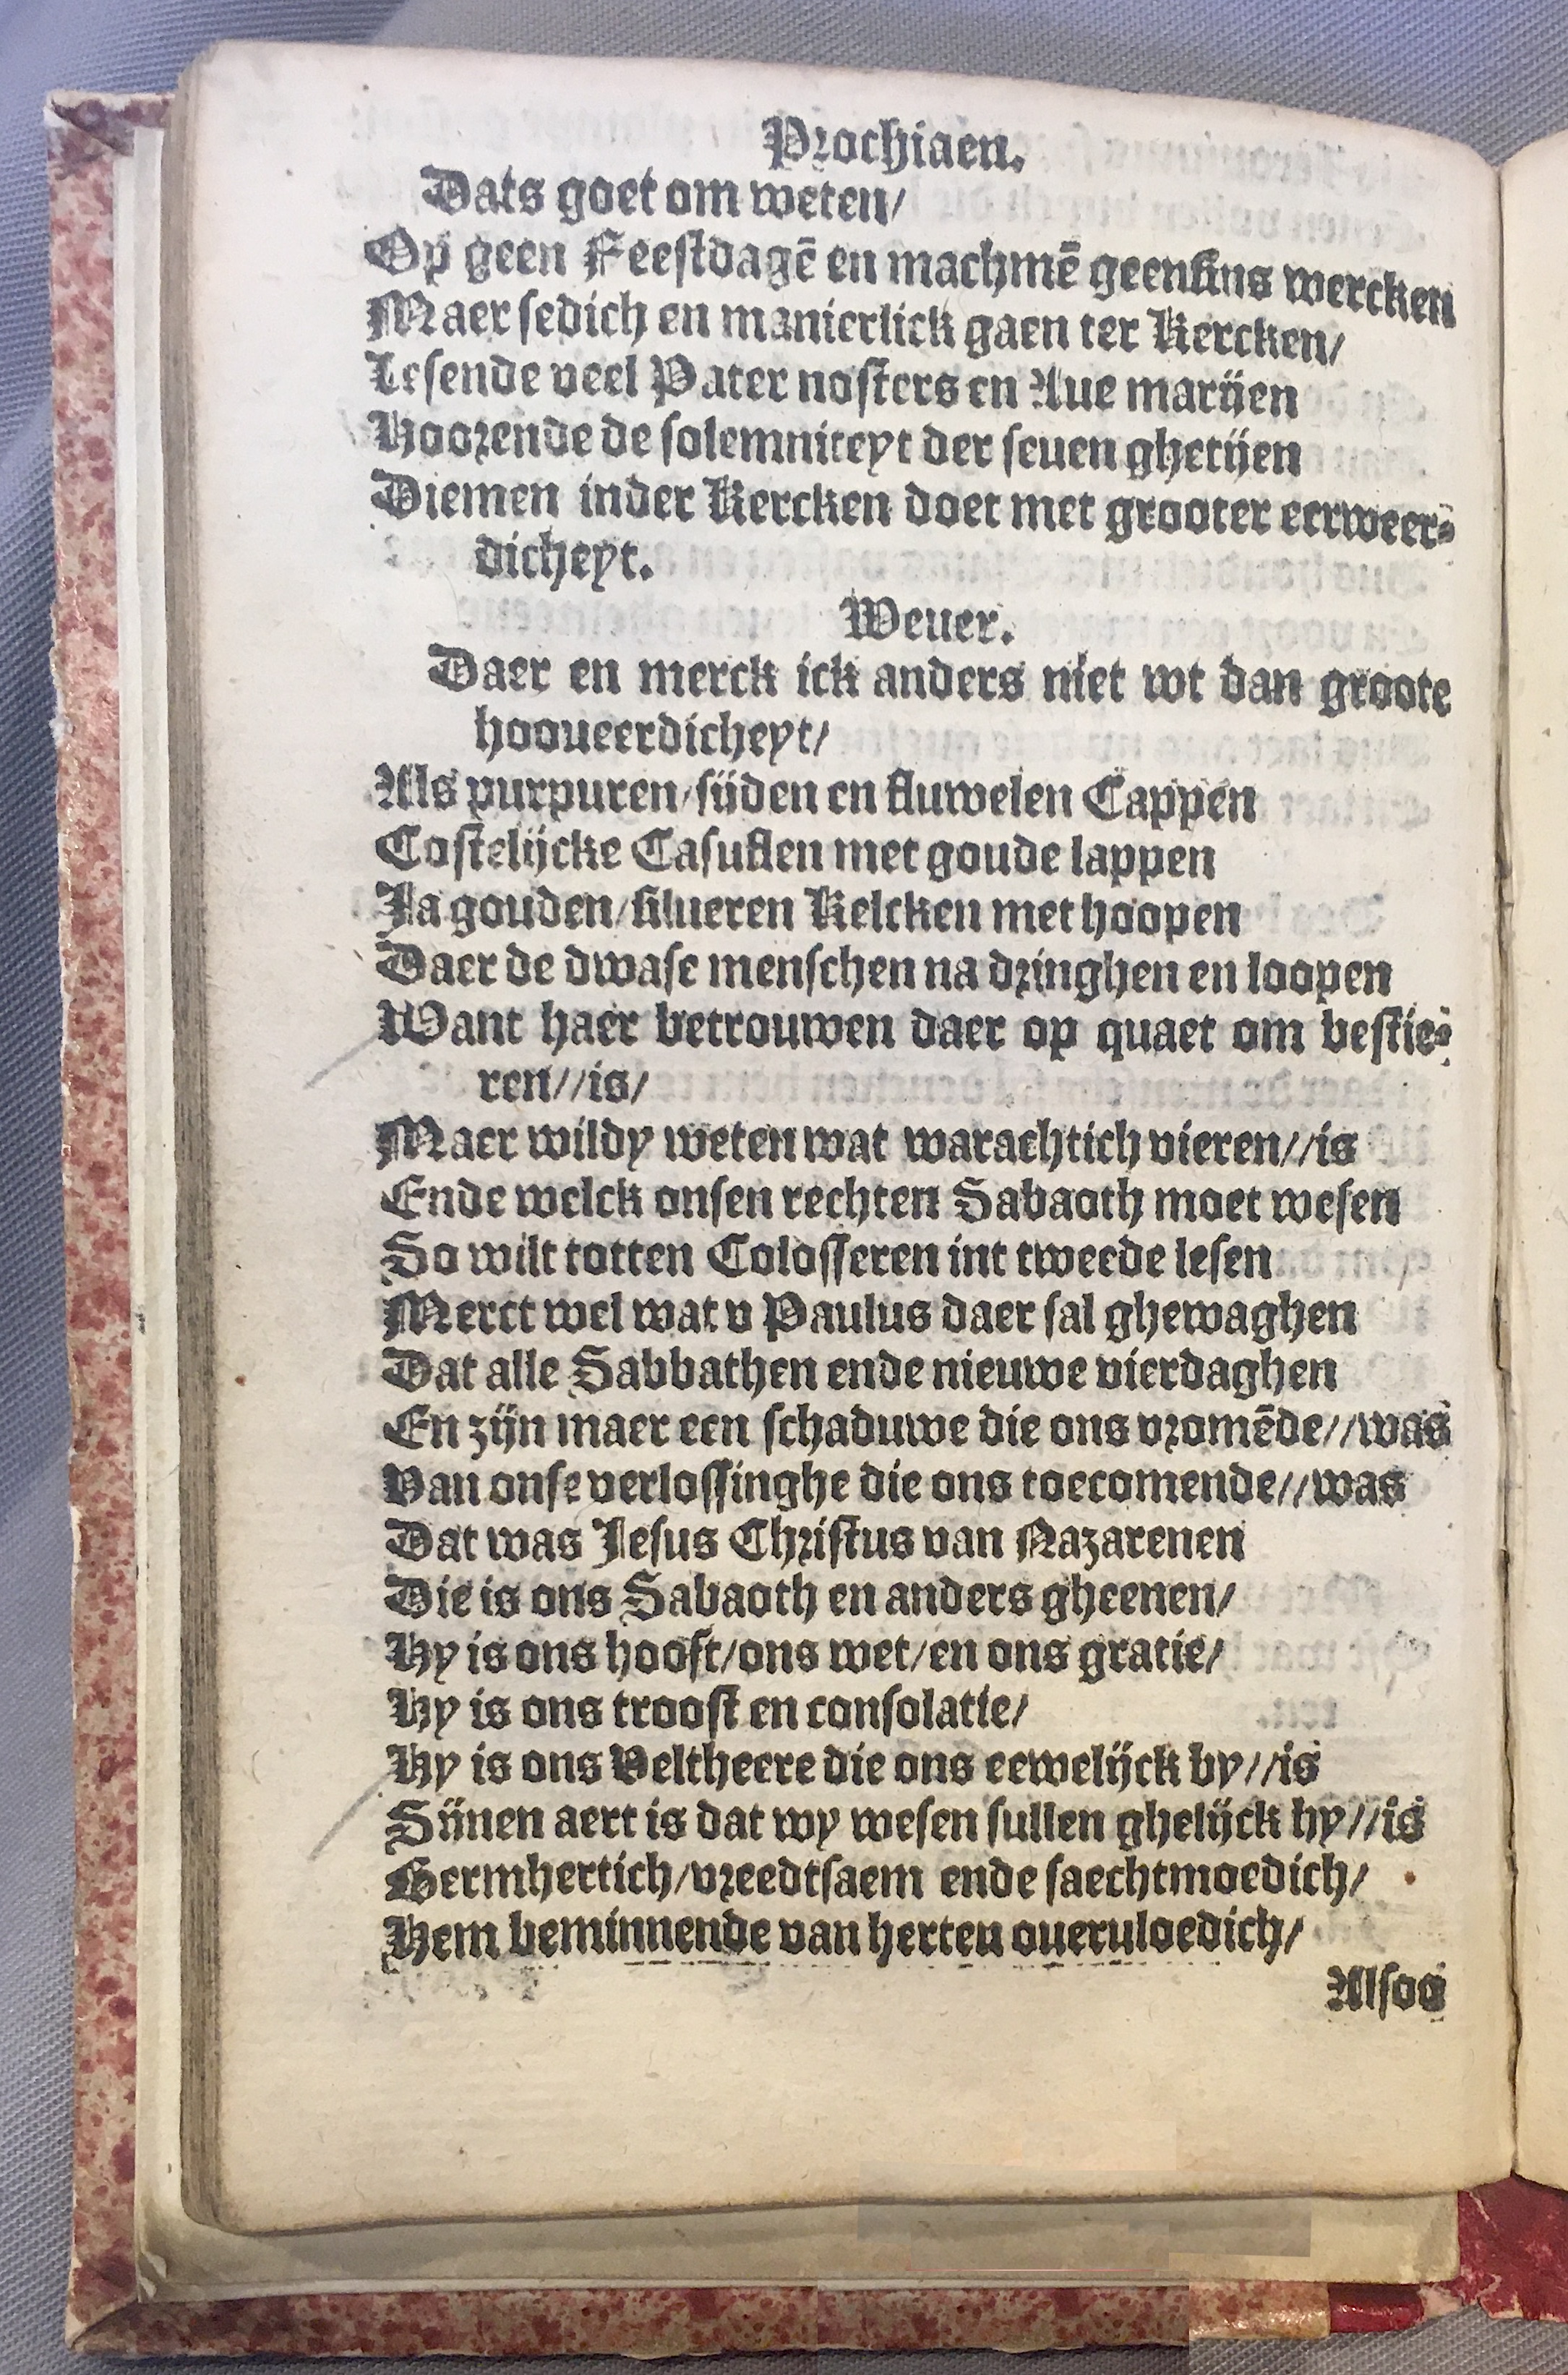 Prochiaen.
Dats goet om weten/
Op geen Feestdagē en machmē geensins wercken
Maer sedich en manierlick gaen ter Kercken/
Lesende veel Pater nosters en Aue marijen
Hoorende de solemniteyt der seuen ghetijen
Diemen inder Kercken doet met grooter eerweer-
dicheyt.
Weuer.
Daer en merck ick anders niet wt dan groote
hooueerdicheyt/
Als purpuren/sijden en fluwelen Cappen
Costelijcke Casuflen met goude lappen
Ja gouden/silueren Kelcken met hoopen
Daer de dwase menschen na dringhen en loopen
Want haer betrouwen daer op quaet om bestie-
ren//is/
Maer wildy weten wat warachtich vieren//is
Ende welck onsen rechten Sabaoth moet wesen
So wilt totten Colosseren int tweede lesen
Merct wel wat v Paulus daer sal ghewaghen
Dat alle Sabbathen ende nieuwe vierdaghen
En zijn maer een schaduwe die ons vromēde//was
Van onse verlossinghe die ons toecomende//was
Dat was Jesus Christus van Nazarenen
Die is ons Sabaoth en anders gheenen/
Hy is ons hooft/ons wet/en ons gratie/
Hy is ons troost en consolatie/
Hy is ons Veltheere die ons eewelijck by//is
Sijnen aert is dat wy wesen sullen ghelijck hy//is
Germhertich/vreedtsaem ende saechtmoedich/
Hem beminnende van herten oueruloedich/
Alsoo